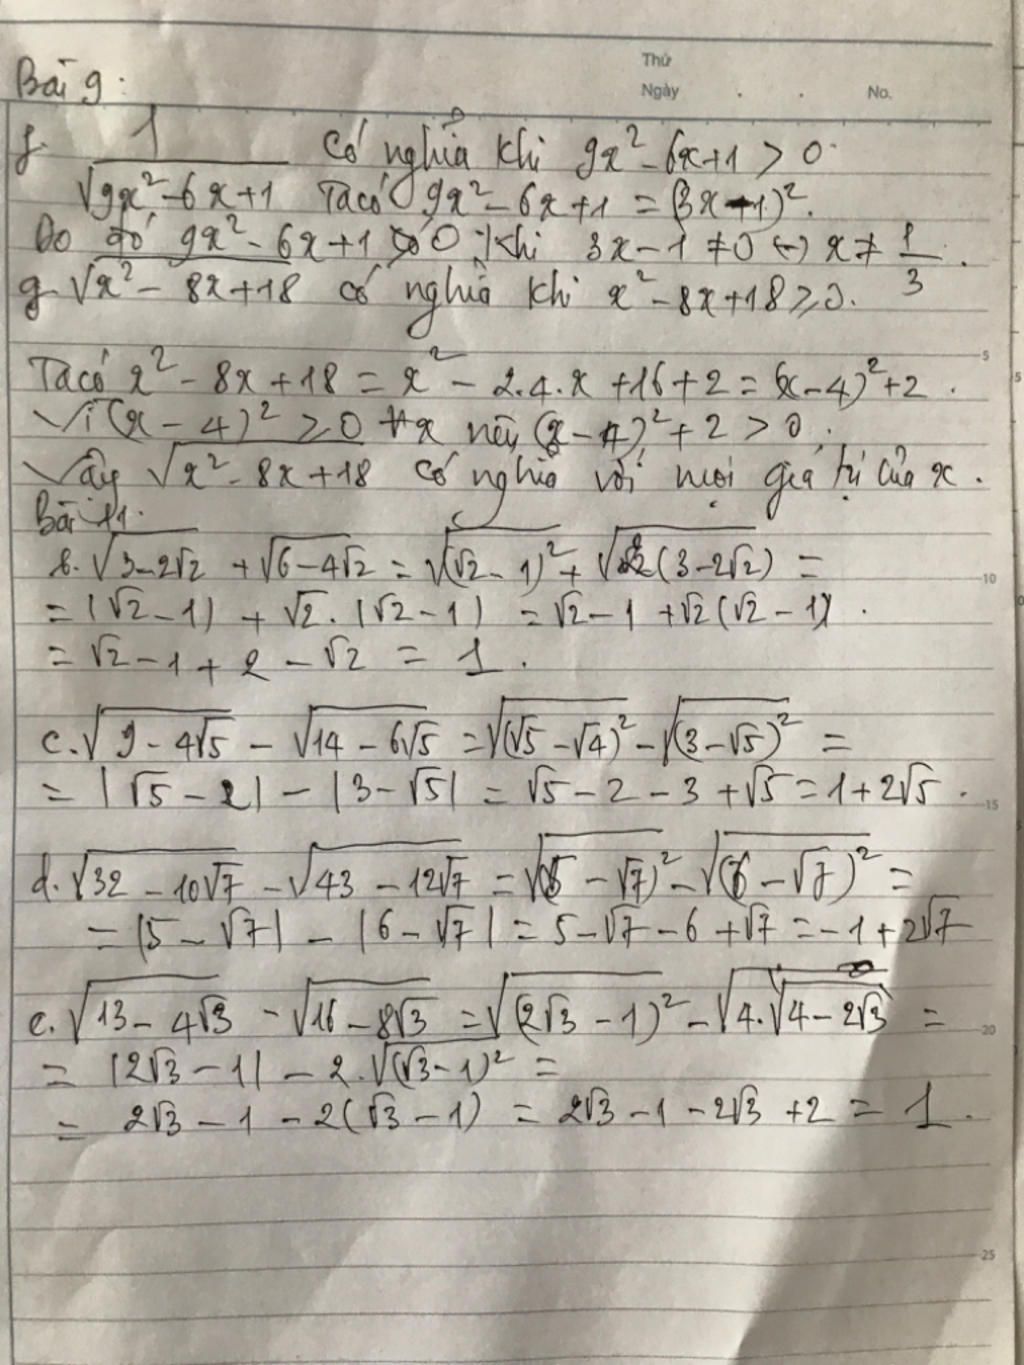 Thứ
Ngày . . No.
Bài 9:
f. 1/√(9x² - 6x + 1) Có nghĩa khi 9x² - 6x + 1 > 0.
Ta có 9x² - 6x + 1 = (3x - 1)².
Do đó 9x² - 6x + 1 > 0 khi 3x - 1 ≠ 0 ↔ x ≠ 1/3.
g √(x² - 8x + 18) có nghĩa khi x² - 8x + 18 ≥ 0.
5
Ta có x² - 8x + 18 = x² - 2.4.x + 16 + 2 = (x - 4)² + 2.
Vì (x - 4)² ≥ 0 ∀x nên (x - 4)² + 2 > 0.
Vậy √(x² - 8x + 18) có nghĩa với mọi giá trị của x.
Bài 11.
b. √(3 - 2√2) + √(6 - 4√2) = √((√2 - 1)²) + √(2(3 - 2√2)) =
10
= |√2 - 1| + √2 . |√2 - 1| = √2 - 1 + √2(√2 - 1).
= √2 - 1 + 2 - √2 = 1.
c. √(9 - 4√5) - √(14 - 6√5) = √((√5 - √4)²) - √((3 - √5)²) =
= |√5 - 2| - |3 - √5| = √5 - 2 - 3 + √5 = 1 + 2√5.
15
d. √(32 - 10√7) - √(43 - 12√7) = √((5 - √7)²) - √((6 - √7)²) =
= |5 - √7| - |6 - √7| = 5 - √7 - 6 + √7 = -1 + 2√7
e. √(13 - 4√3) - √(16 - 8√3) = √((2√3 - 1)²) - √4.√(4 - 2√3) =
20
= |2√3 - 1| - 2.√((√3 - 1)²) =
= 2√3 - 1 - 2(√3 - 1) = 2√3 - 1 - 2√3 + 2 = 1.
25